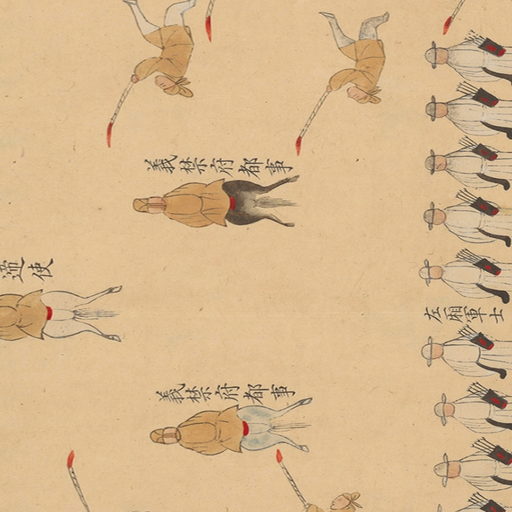 義禁府都事
使
左廂軍士
義禁府都事